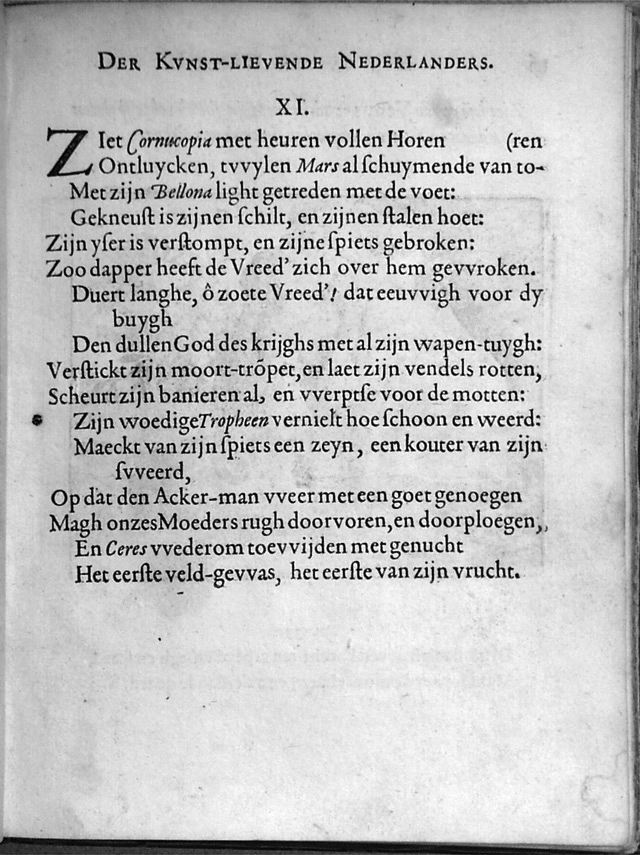 DER KVNST-LIEVENDE NEDERLANDERS.
XI.
ZIet Cornucopia met heuren vollen Horen (ren
Ontluycken, tvvylen Mars al ſchuymende van to-
Met zijn Bellona light getreden met de voet:
Gekneuſt is zijnen ſchilt, en zijnen ſtalen hoet:
Zijn yſer is verſtompt, en zijne ſpiets gebroken:
Zoo dapper heeft de Vreed' zich over hem gevvroken.
Duert langhe, ô zoete Vreed'! dat eeuvvigh voor dy
buygh
Den dullen God des krijghs met al zijn wapen-tuygh:
Verſtickt zijn moort-trõpet, en laet zijn vendels rotten,
Scheurt zijn banieren al, en vverptſe voor de motten:
Zijn woedige Tropheen vernielt hoe ſchoon en weerd:
Maeckt van zijn ſpiets een zeyn, een kouter van zijn
ſvveerd,
Op dat den Acker-man vveer met een goet genoegen
Magh onzes Moeders rugh doorvoren, en doorploegen,
En Ceres vvederom toevvijden met genucht
Het eerſte veld-gevvas, het eerſte van zijn vrucht.